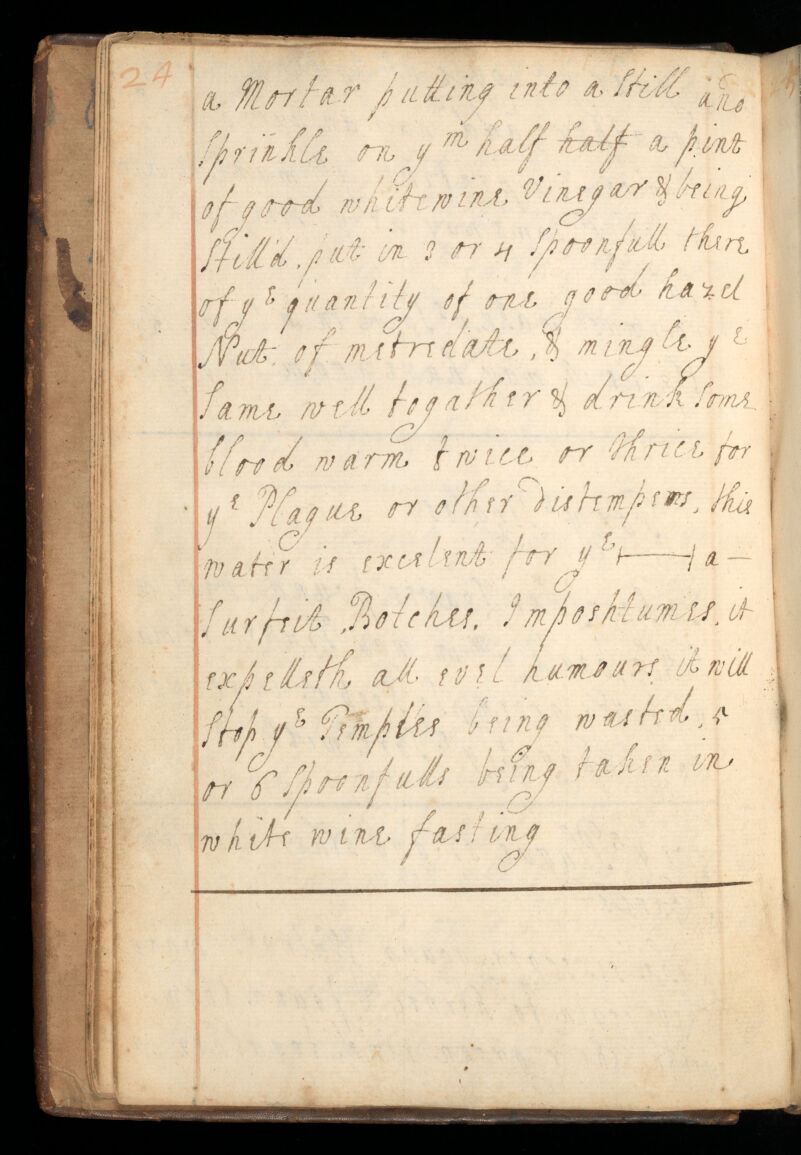 24
a Mortar putting into a Still and
Sprinkle on yᵐ half half a pint
of good whitewine Vinegar & being
Still'd. put in 3 or 4 Spoonfull there
of yᵉ quantity of one good hazel
Nut of metredate, & mingle yᵉ
Same well togather & drink Some
blood warm twice or thrice for
yᵉ Plague or other Distempers, this
water is excelent for yᵉ a
Surfeit, Botches, Imposhtumes, it
expelleth all evel humours it will
Stop yᵉ Temples being wasted, 5
or 6 Spoonfulls being taken in
white wine fasting